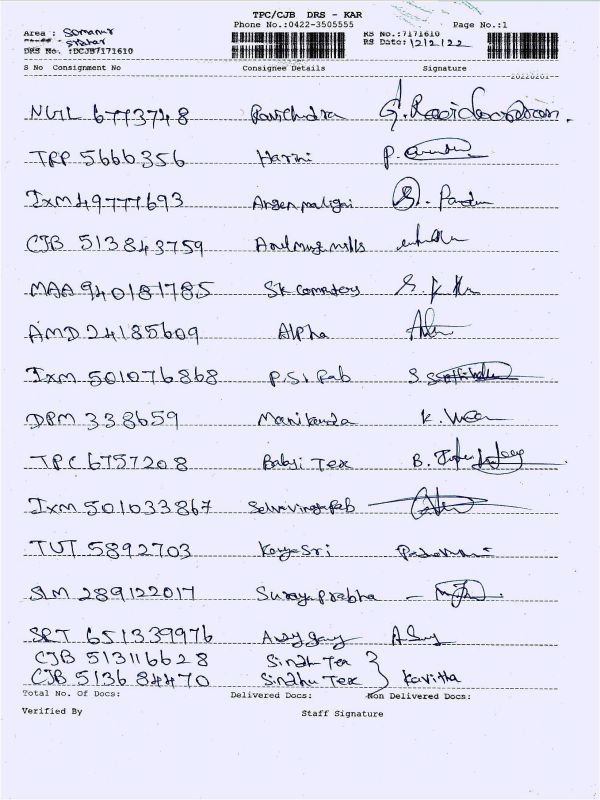 TPC/CJB DRS - KAR
Phone No.:0422-3505555 Page No.:1
Area : Somanur
DRS No. :DCJB7171610
RS No.:7171610
RS Date: 12/2/22
S No Consignment No Consignee Details Signature
20220201
NGL 6773748 Ravichndra
TRP 5666356 Harni
IXM 49777693
CJB 513843759 Arulmuga mills
MAA 940181785 SK compters
AMD 24185609 Alpha
IXM 501076868 P.S.I Fab
DPM 338659 Manikanda K.
TPC 6757208 Babyi Tex B.
IXM 501033867
TUT 5892703 Kavya Sri
SLM 289122017 Surya prabha
SRT 651339976
CJB 513116628 Sindhu Tex
CJB 513684470 Sindhu Tex Kavitha
Total No. Of Docs: Delivered Docs: Non Delivered Docs:
Verified By Staff Signature